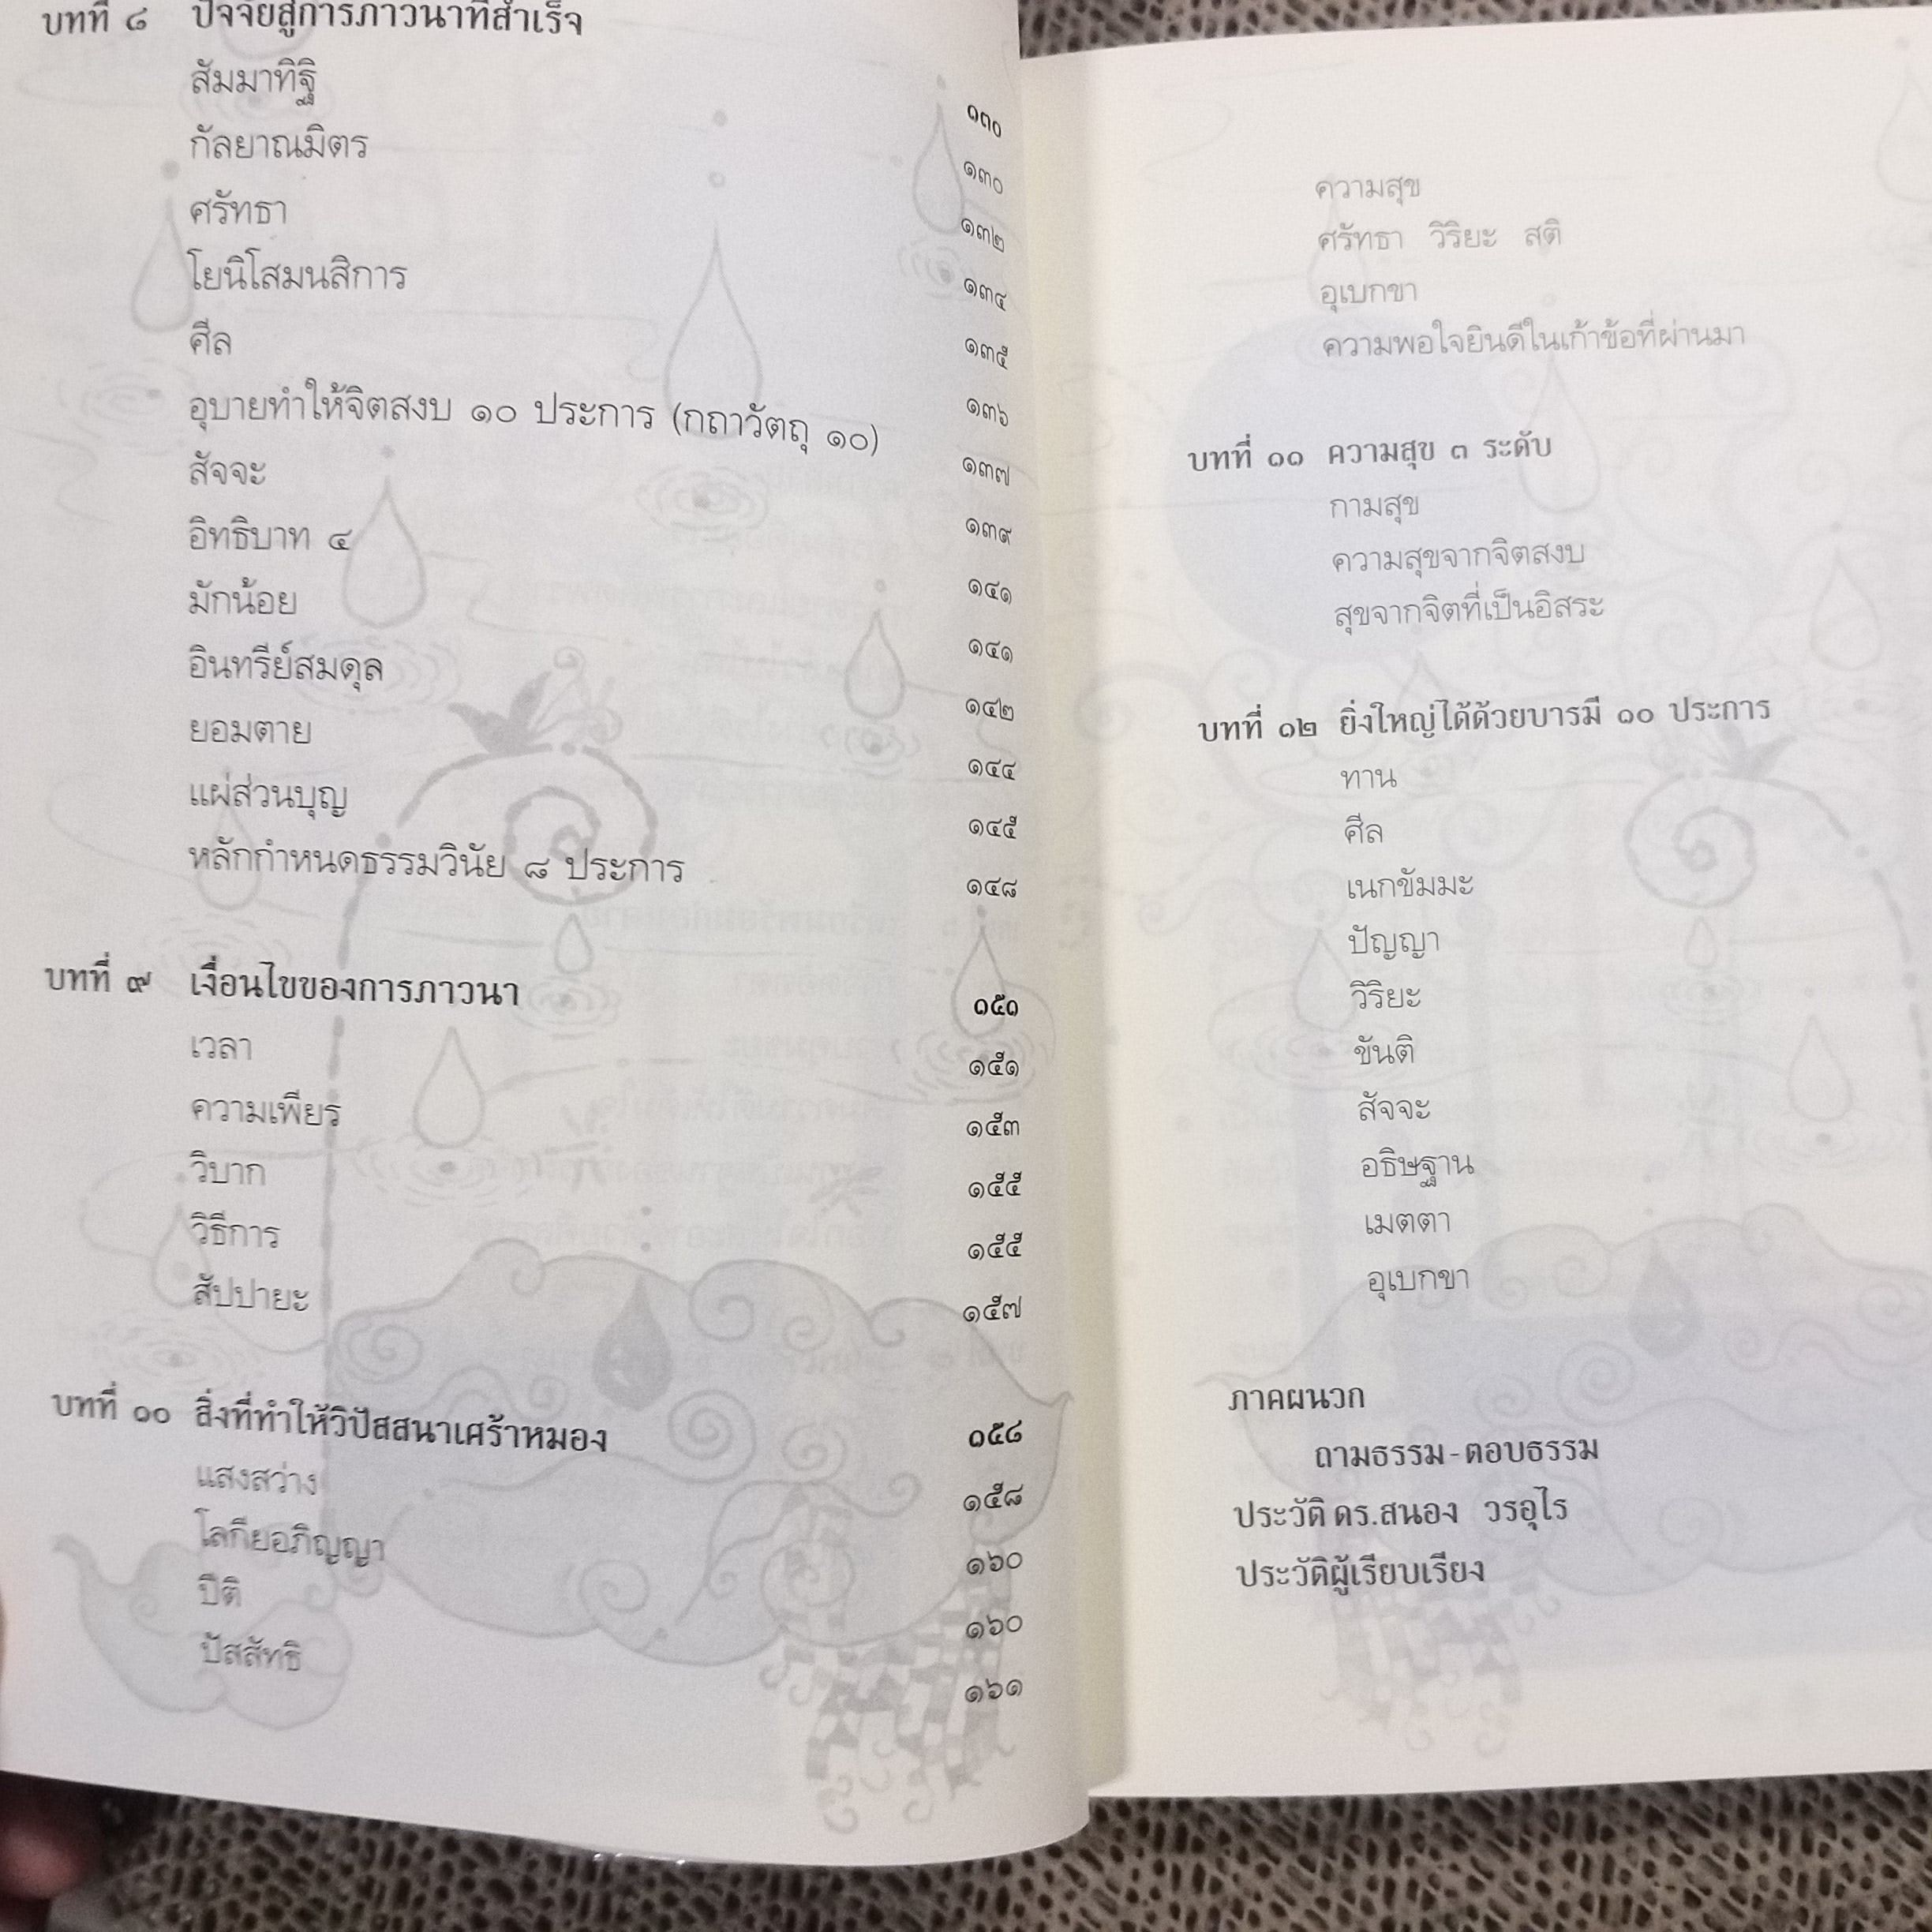 บทที่ ๘ ปัจจัยสู่การภาวนาที่สำเร็จ ๑๓๐
สัมมาทิฐิ ๑๓๐
กัลยาณมิตร ๑๓๒
ศรัทธา ๑๓๔
โยนิโสมนสิการ ๑๓๕
ศีล ๑๓๖
อุบายทำให้จิตสงบ ๑๐ ประการ (กถาวัตถุ ๑๐) ๑๓๗
สัจจะ ๑๓๙
อิทธิบาท ๔ ๑๔๑
มักน้อย ๑๔๑
อินทรีย์สมดุล ๑๔๒
ยอมตาย ๑๔๔
แผ่ส่วนบุญ ๑๔๕
หลักกำหนดธรรมวินัย ๘ ประการ ๑๔๘
บทที่ ๙ เงื่อนไขของการภาวนา ๑๕๑
เวลา ๑๕๑
ความเพียร ๑๕๓
วิบาก ๑๕๕
วิธีการ ๑๕๕
สัปปายะ ๑๕๗
บทที่ ๑๐ สิ่งที่ทำให้วิปัสสนาเศร้าหมอง ๑๕๘
แสงสว่าง ๑๕๘
โลกียอภิญญา ๑๖๐
ปีติ ๑๖๐
ปัสสัทธิ ๑๖๑
ความสุข
ศรัทธา วิริยะ สติ
อุเบกขา
ความพอใจยินดีในเก้าข้อที่ผ่านมา
บทที่ ๑๑ ความสุข ๓ ระดับ
กามสุข
ความสุขจากจิตสงบ
สุขจากจิตที่เป็นอิสระ
บทที่ ๑๒ ยิ่งใหญ่ได้ด้วยบารมี ๑๐ ประการ
ทาน
ศีล
เนกขัมมะ
ปัญญา
วิริยะ
ขันติ
สัจจะ
อธิษฐาน
เมตตา
อุเบกขา
ภาคผนวก
ถามธรรม-ตอบธรรม
ประวัติ ดร.สนอง วรอุไร
ประวัติผู้เรียบเรียง